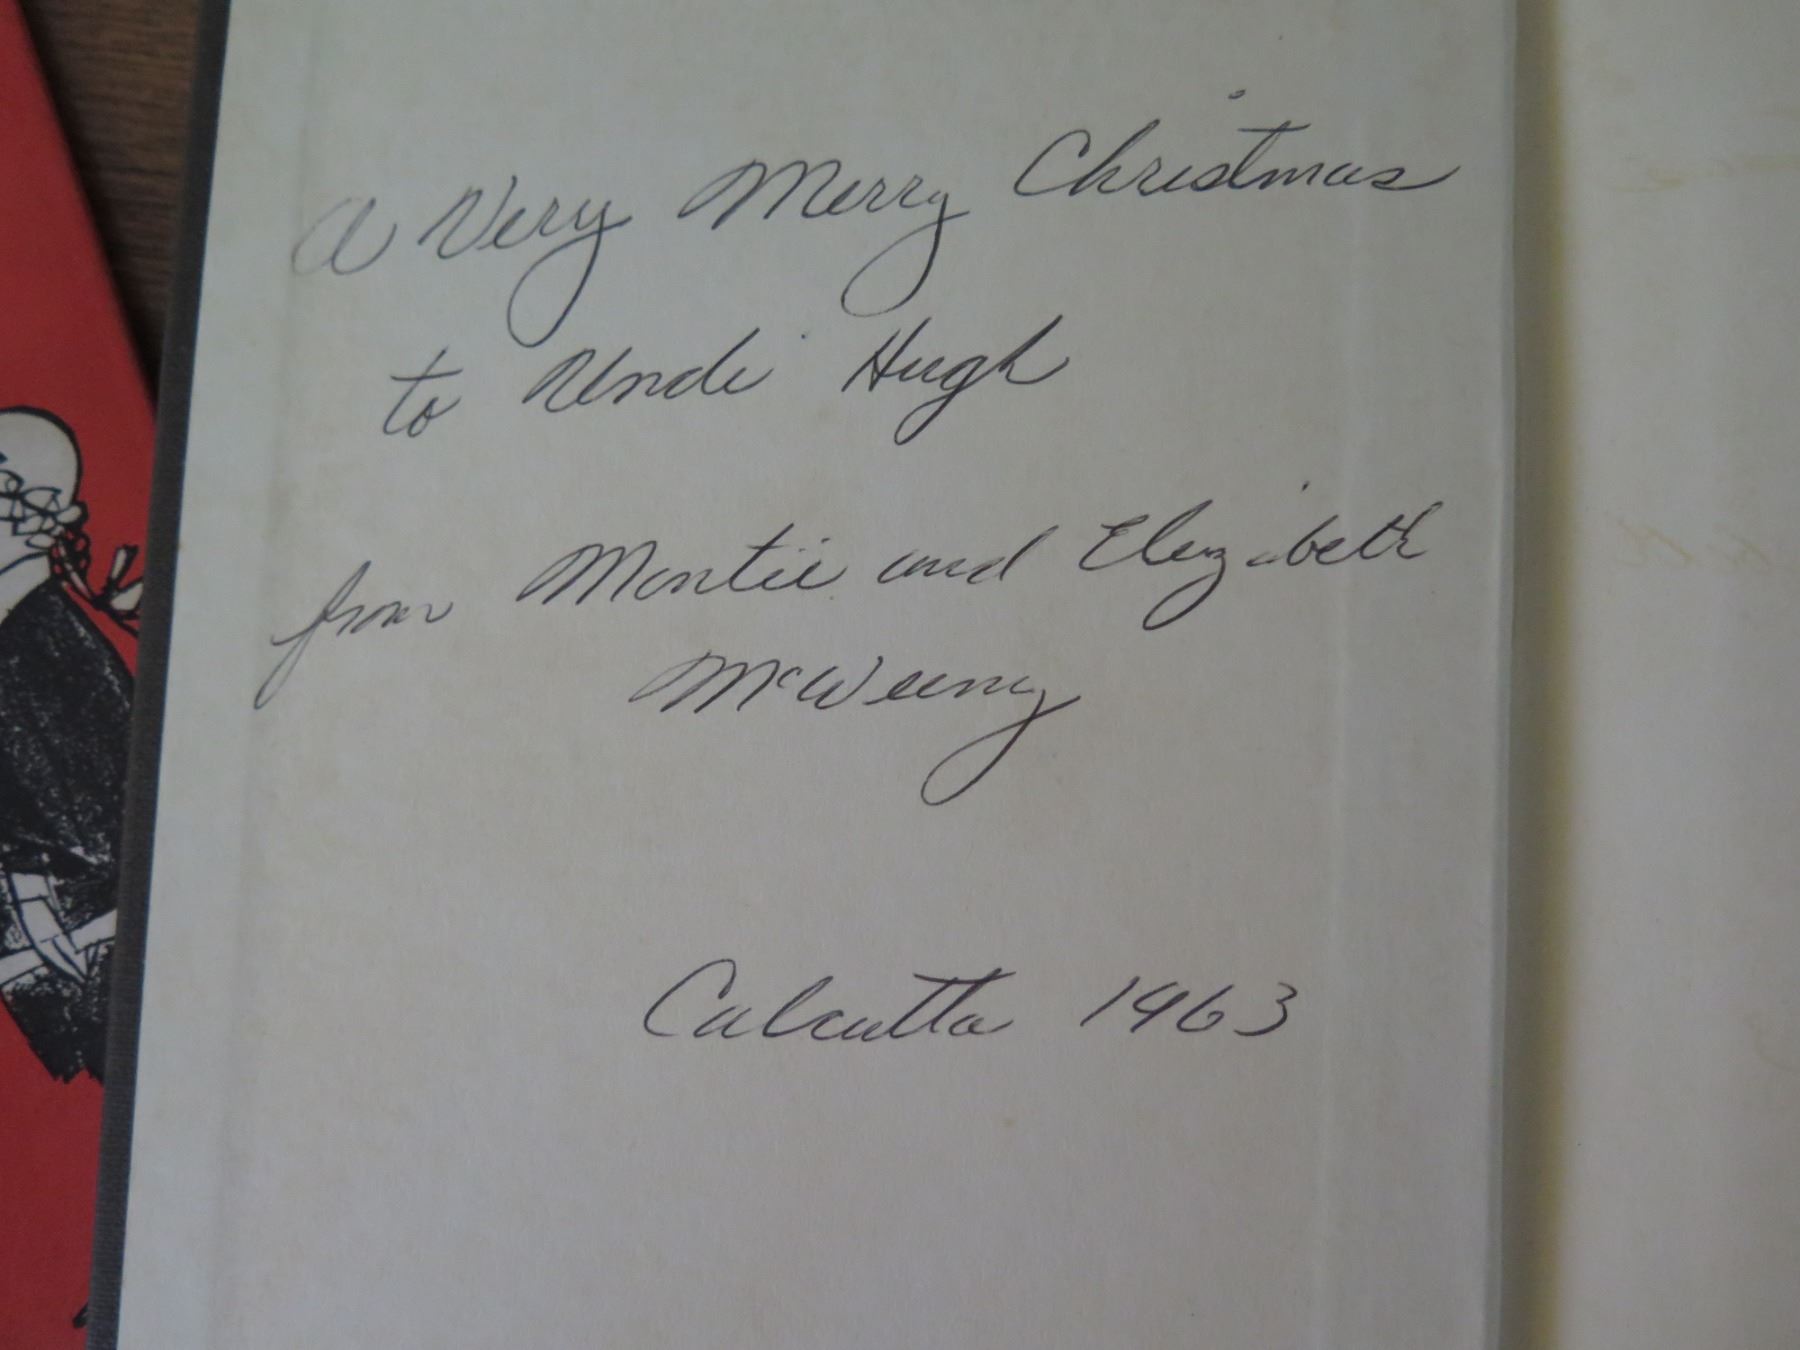 A Very Merry Christmas
to Uncle Hugh
from Montie and Elizabeth
McWeeny
Calcutta 1963